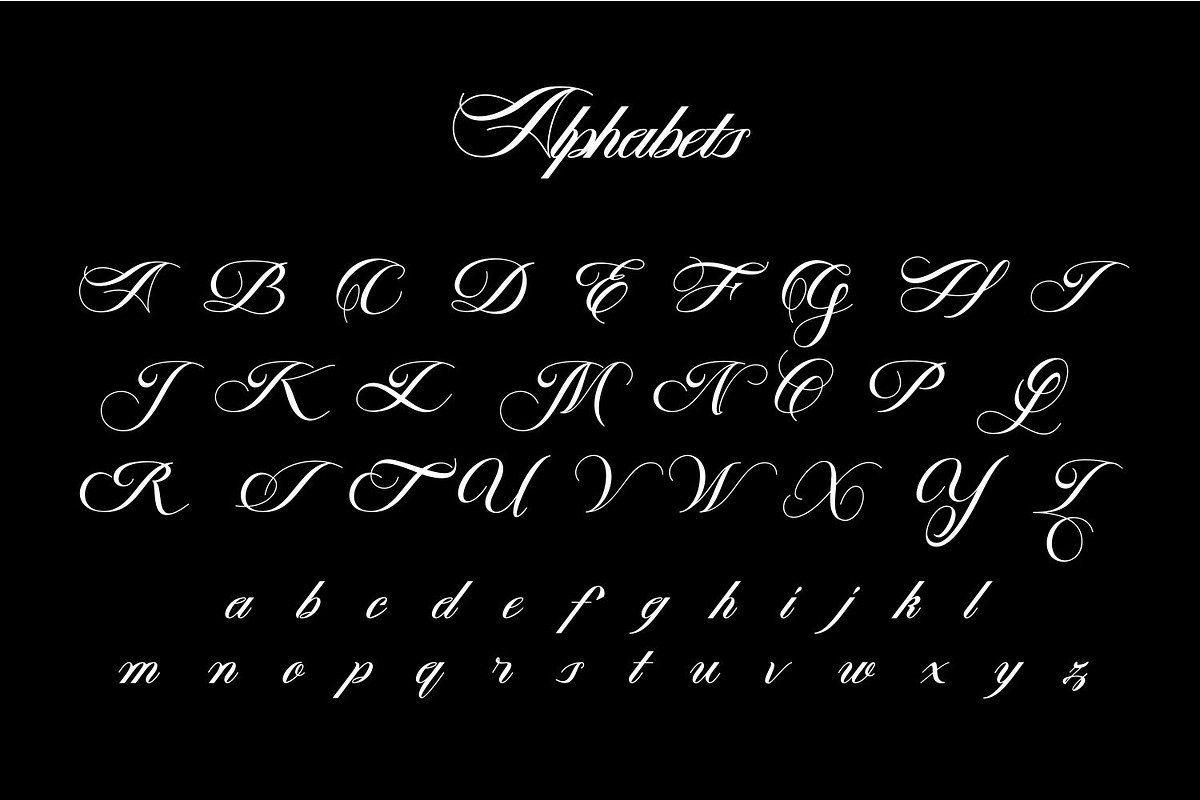 Alphabets
A B C D E F G H I
J K L M N O P Q
R S T U V W X Y Z
a b c d e f g h i j k l
m n o p q r s t u v w x y z